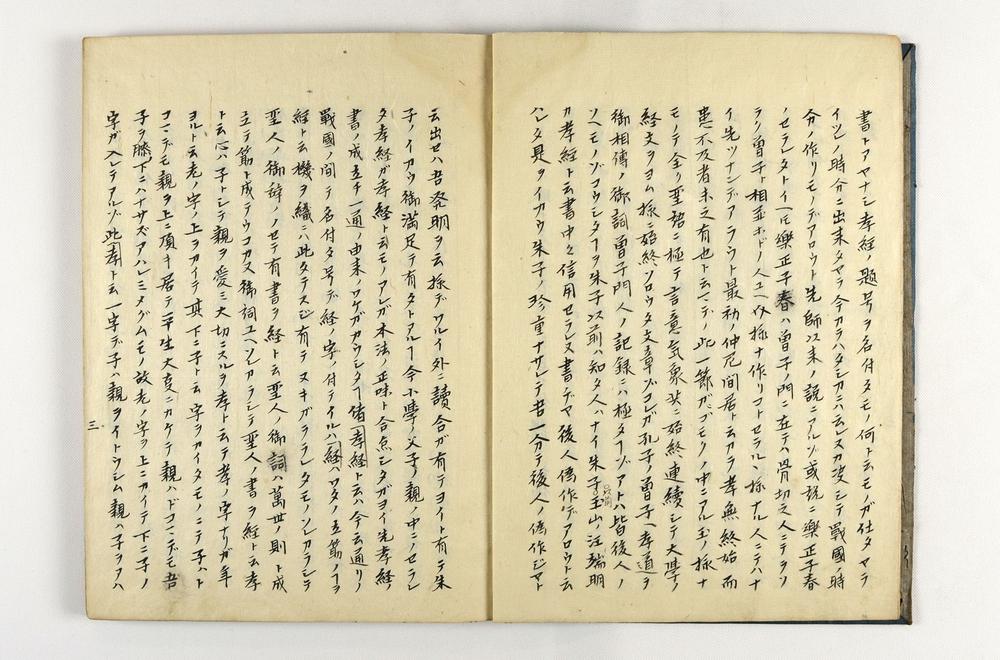 書トアヤナシ孝経ノ題号ヲ名付タモノ何ト云モノガ仕タヤラ
イツノ時分ニ出来タヤラ今カラハタシカニハ云レヌカ必シテ戰國時
分ノ作リモノデアロウト先師以来ノ説ニアルゾ或説ニ樂正子春
ノセラレタトイヘ𪜈樂正子春ハ曽子ノ門ニ在テハ骨切之人ニテヲソ
ラク曽子ト相並ホドノ人ユヘ此様ナ作リコトセラルヽ様ナル人ニテハナ
イ先ツナンデアラウト最初ノ仲尼間居ト云カラ孝無終始而
患不及者未之有也ト云マデノ此一節ガニモクノ中ニアル玉ノ様ナ
モノデ全ク聖語ニ極テ言意氣象共ニ始終連續シテ大學ノ
経文ヲヨム様ニ始終ソロウタ文章ゾコレガ孔子ノ曽子ヘ孝道ヲ
御相傳ノ御詞曽子門人ノ記録ニハ極タヿゾアトハ皆後人ノ
ソヘモノゾコウシタヿヲ朱子以前ハ知タ人ハナイ朱子玉山ノ汪端明
カ孝経ト云書中々信用セラレヌ書デヤ後人偽作デアロウト云
ハレタ見ヲイカウ朱子ノ珍重ナサレテ吾一分テ後人ノ偽作ジヤト
云出セハ吾発明ヲ云様デワルイ外ニ讀合ガ有テヨイト有テ朱
子ノイカウ御満足テ有タトアルヿ今小學ノ父子ノ親ノ中ニノセラレ
タ孝経ガ孝経ト云モノアレガ本法ノ正味ト合点シタガヨイ先孝経ノ
書ノ成立チ一通ノ由来ノワケガカウシタヿ偖孝経ト云ハ今云通リノ
戰國ノ間テ名付タ号デ経ノ字ノ付テイルハ経ハワタノ立筋ノヿヲ
経ト云機ヲ織ニハ此タテスジ有テヌキガヲラレタモノソレカラシテ
聖人ノ御辞ヲノセテ有書ヲ経ト云聖人ノ御詞ハ萬世則ト成
立テ筋ト成テウコカヌ御詞ユヘソレカラシテ聖人ノ書ヲ経ト云孝
ト云心ハ子トシテ親ヲ愛シ大切ニスルヲ孝ト云テ孝ノ字ナリガ年
ヨルト云老ノ字ノ上ヲカイテ其下ニ子ト云字ヲカイタモノニテ子ハト
コマデモ親ヲ上ニ頂キ居テ一生大支ニカケテ親ハドコマデモ吾
子ヲ膝下ニハナサズアハレミメグムモノ故老ノ字ヲ上ニカイテ下ニ子ノ
字ガ入レテアルゾ此孝ト云一字デ子ハ親ヲイトウシム親ハ子ヲフハ
三